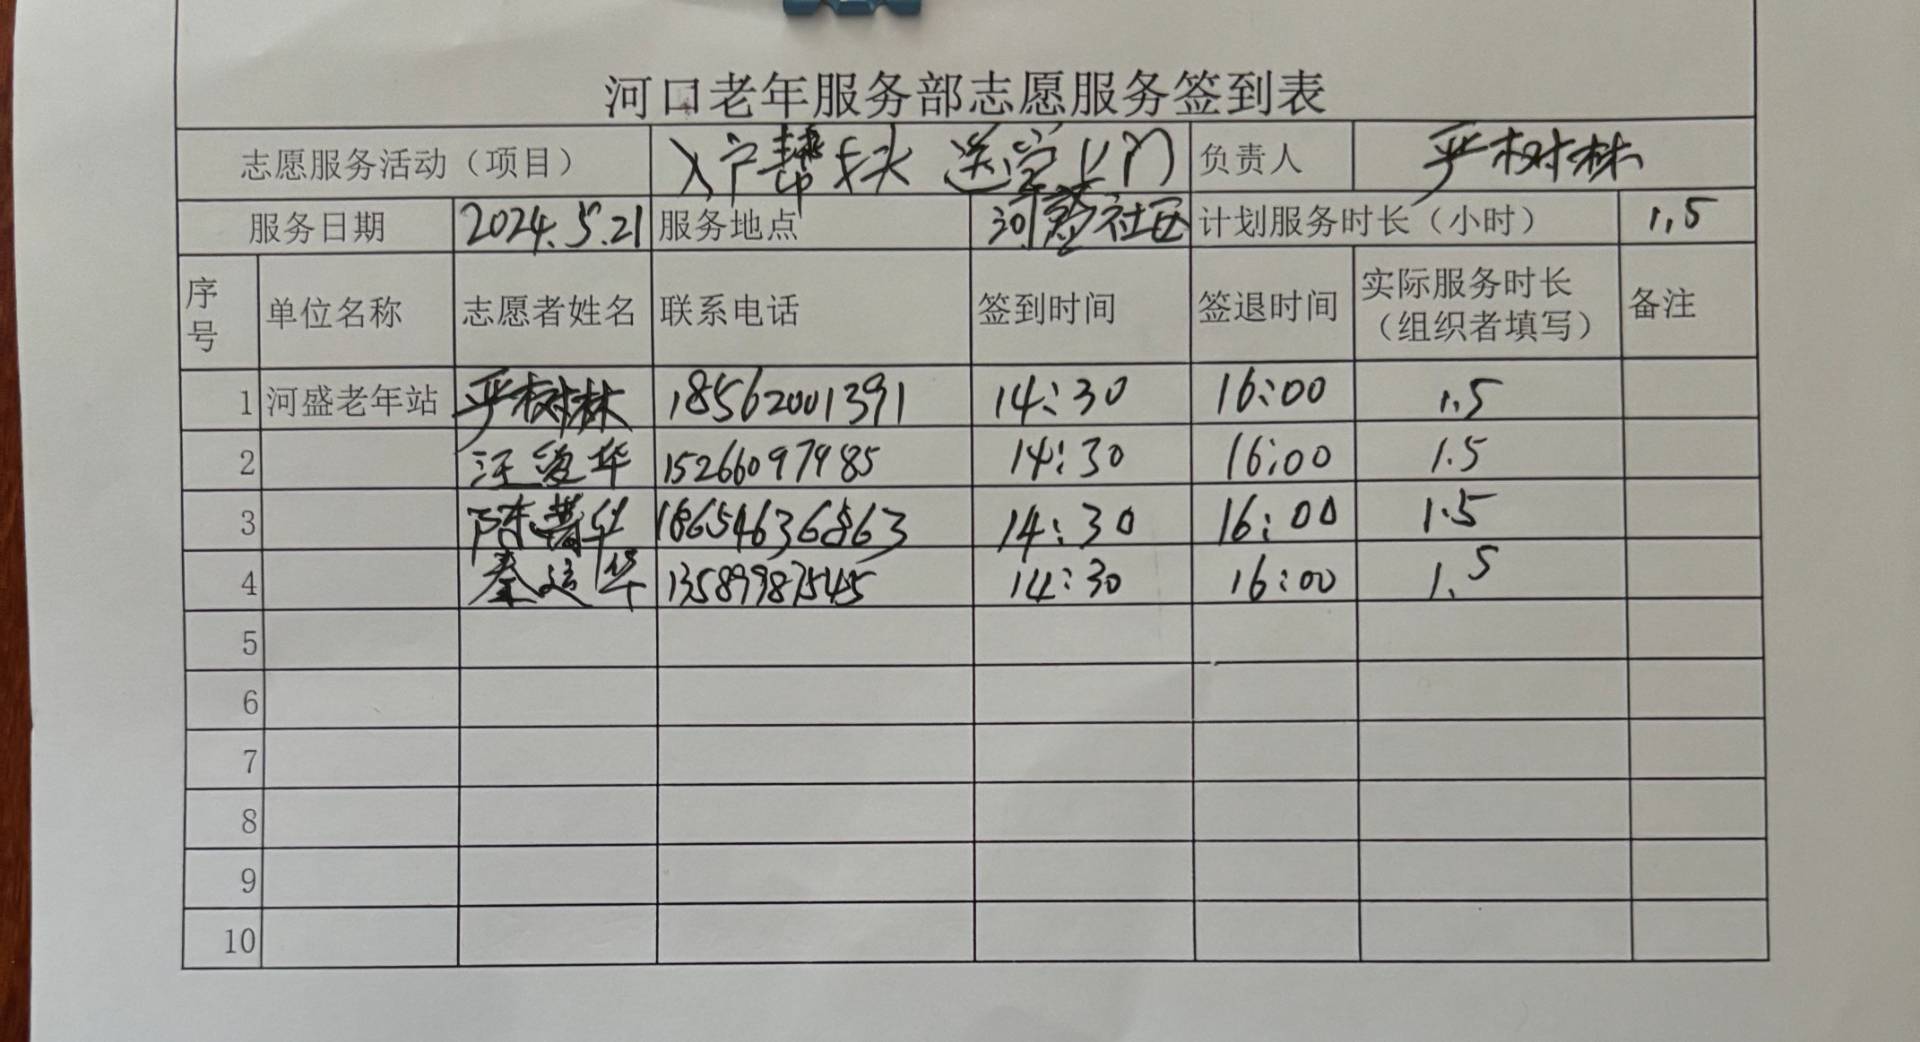 河口老年服务部志愿服务签到表
志愿服务活动（项目） 入户帮扶 送学上门 负责人 严树林
服务日期 2024.5.21 服务地点 河盛社区 计划服务时长（小时） 1.5
序号 单位名称 志愿者姓名 联系电话 签到时间 签退时间 实际服务时长（组织者填写） 备注
1 河盛老年站 严树林 18562001391 14:30 16:00 1.5
2 汪爱华 15266097985 14:30 16:00 1.5
3 陈 华 18654636863 14:30 16:00 1.5
4 秦运华 13589987545 14:30 16:00 1.5
5
6
7
8
9
10